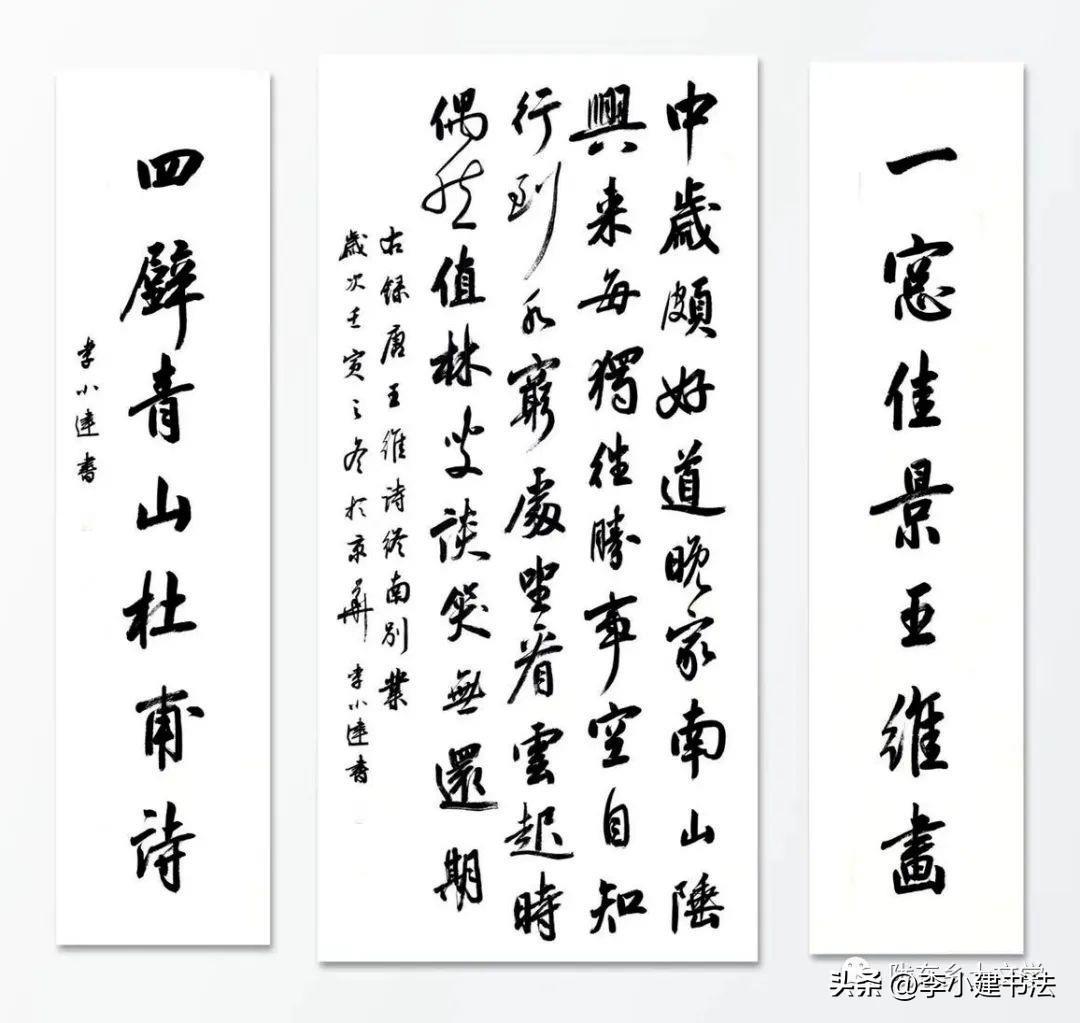 一窓佳景王維畫
中歲頗好道晚家南山陲
興來每獨往勝事空自知
行到水窮處坐看雲起時
偶然值林叟談笑無還期
右錄唐王維詩終南別業
歲次壬寅之冬於京華 李小建書
四壁青山杜甫詩
李小建書
头条 @李小建书法